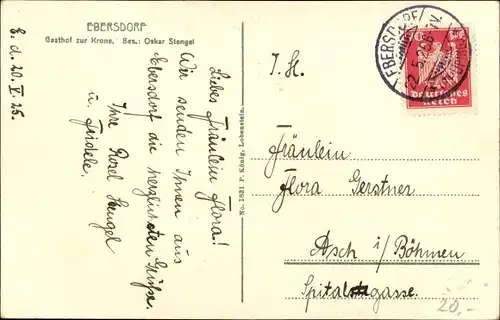 EBERSDORF
Gasthof zur Krone. Bes.: Oskar Stengel
E. d. 20. V. 26.
Liebes Fräulein Flora!
Wir senden Ihnen aus
Ebersdorf die herzlichsten Grüße.
Ihre Rosel Stengel
u. Friedele.
No. 1831 P. König, Lobenstein.
I. H.
EBERSDORF
Deutsches
Reich
Fräulein
Flora Gerstner
Asch i/Böhmen
Spitalgasse.
20,-